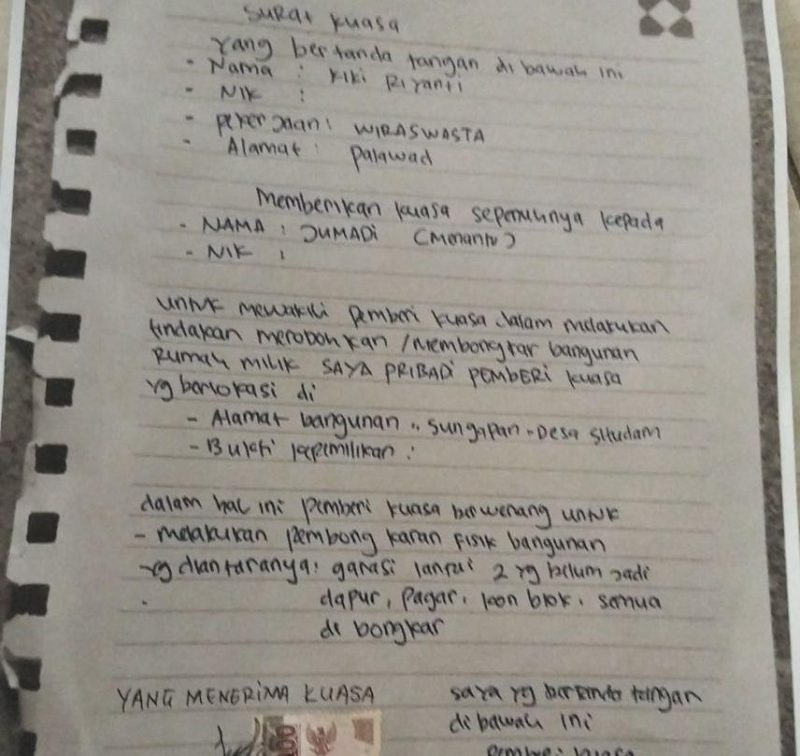 SURAt kuasa
yang bertanda tangan di bawah ini
- Nama : Kiki Riyanti
- NIK :
- pekerjaan : WIRASWASTA
- Alamat : palawad
Memberikan kuasa sepenuhnya kepada
- NAMA : JUMADI (Menantu)
- NIK :
untuk mewakili pemberi kuasa dalam melakukan
tindakan merobohkan / Membongkar bangunan
Rumah milik SAYA PRIBADI PEMBERI kuasa
yg berlokasi di
- Alamat bangunan : Sungapan - Desa
- Bukti kepemilikan :
dalam hal ini pemberi kuasa berwenang untuk
- melakukan pembong karan fisik bangunan
yg diantaranya : garasi lantai 2 yg belum jadi
dapur, pagar, koon blok, semua
di bongkar
YANG MENERIMA KUASA
saya yg bertanda tangan
di bawah ini
pemberi kuasa